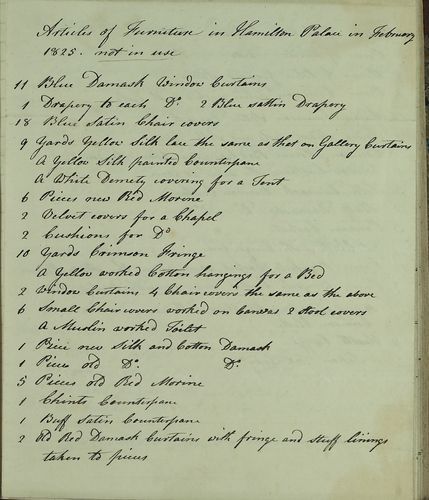 Articles of Furniture in Hamilton Palace in February
1825. not in use
11 Blue Damask Window Curtains
1 Drapery to each Do. 2 Blue sattin Drapery
18 Blue Satin Chair covers
9 Yards Yellow Silk lace the same as that on Gallery Curtains
A Yellow Silk painted Counterpane
A White Demety covering for a Tent
6 Pieces new Red Morine
2 Velvet covers for a Chapel
2 Cushions for Do
10 Yards Crimson Fringe
A Yellow worked Cotton hangings for a Bed
2 Window Curtains 4 Chair covers the same as the above
6 Small Chair covers worked on Canvas 2 Stool covers
A Muslin worked Toilet
1 Piece new Silk and Cotton Damask
1 Piece old Do. Do.
5 Pieces old Red Morine
1 Chints Counterpane
1 Buff Satin Counterpane
2 Old Red Damask Curtains with fringe and stuff linings
taken to pieces